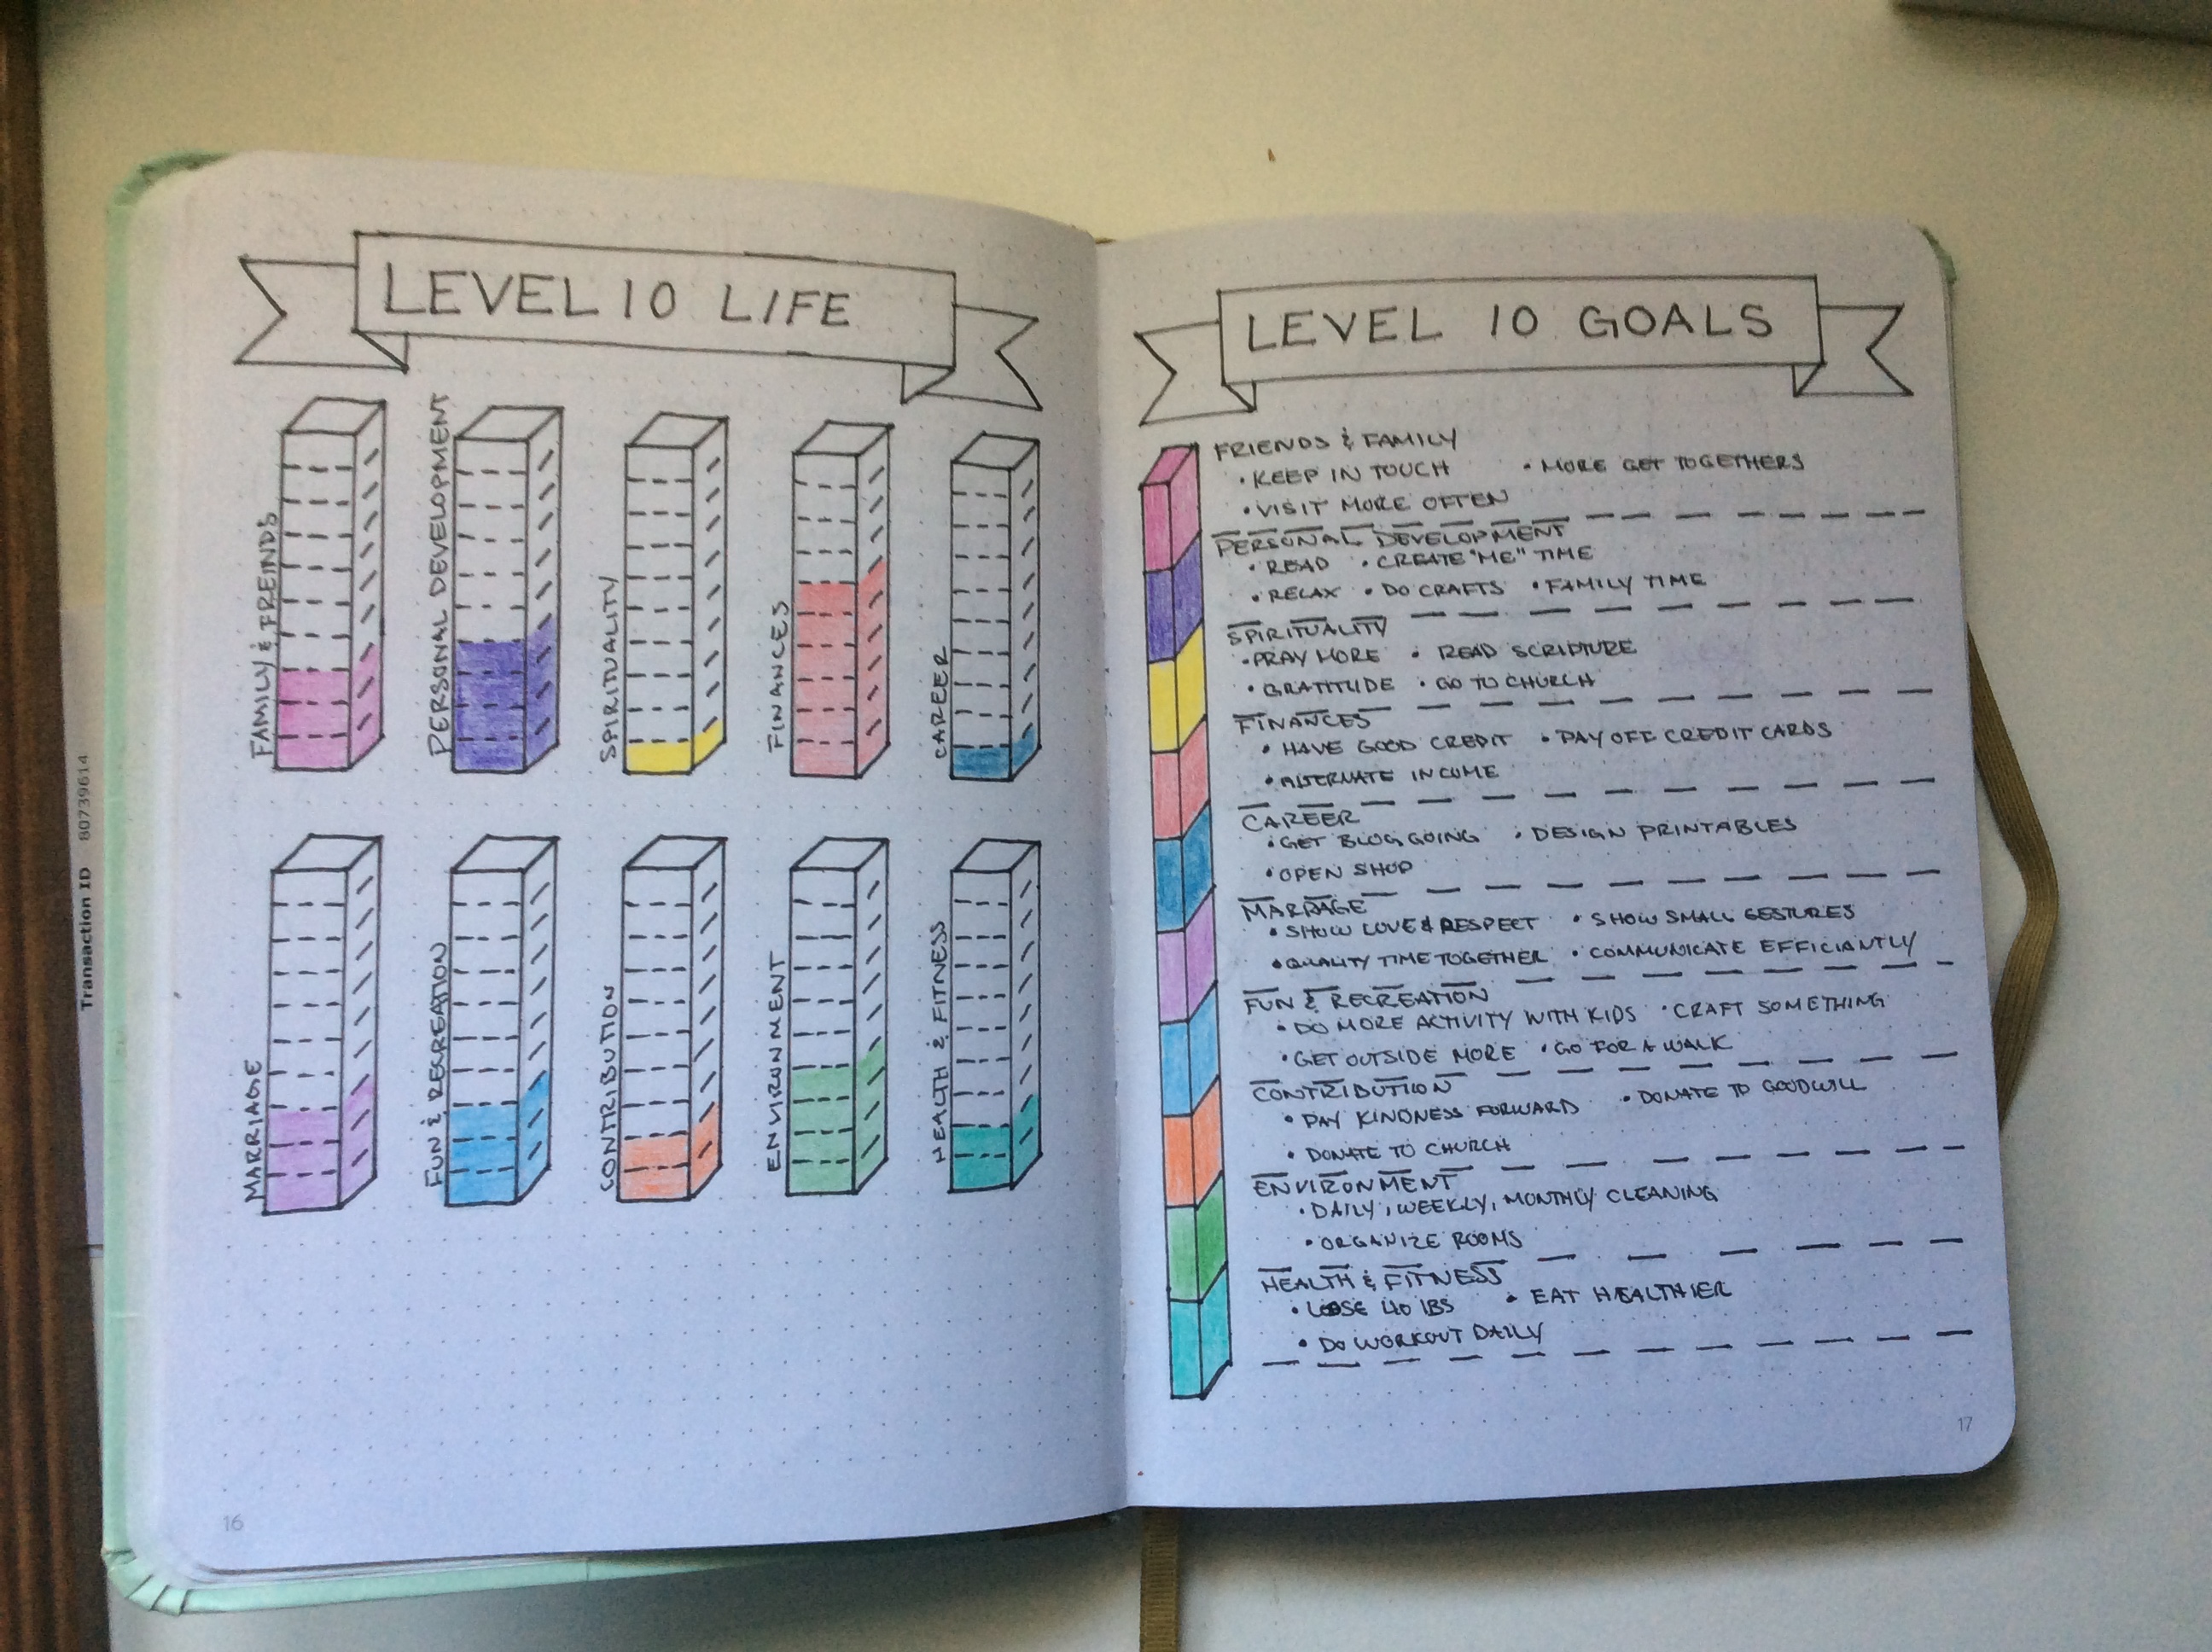 LEVEL 10 LIFE
FAMILY & FREINDS
PERSONAL DEVELOPMENT
SPIRITUALITY
FINANCES
CAREER
MARRIAGE
FUN & RECREATION
CONTRIBUTION
ENVIRONMENT
HEALTH & FITNESS
16
Transaction ID 80739614
LEVEL 10 GOALS
FRIENDS & FAMILY
• KEEP IN TOUCH • MORE GET TOGETHERS
• VISIT MORE OFTEN
PERSONAL DEVELOPMENT
• READ • CREATE "ME" TIME
• RELAX • DO CRAFTS • FAMILY TIME
SPIRITUALITY
• PRAY MORE • READ SCRIPTURE
• GRATITUDE • GO TO CHURCH
FINANCES
• HAVE GOOD CREDIT • PAY OFF CREDIT CARDS
• ALTERNATE INCOME
CAREER
• GET BLOG GOING • DESIGN PRINTABLES
• OPEN SHOP
MARRAGE
• SHOW LOVE & RESPECT • SHOW SMALL GESTURES
• QUALITY TIME TOGETHER • COMMUNICATE EFFICIANTLY
FUN & RECREATION
• DO MORE ACTIVITY WITH KIDS • CRAFT SOMETHING
• GET OUTSIDE MORE • GO FOR A WALK
CONTRIBUTION
• PAY KINDNESS FORWARD • DONATE TO GOODWILL
• DONATE TO CHURCH
ENVIRONMENT
• DAILY, WEEKLY, MONTHLY CLEANING
• ORGANIZE ROOMS
HEALTH & FITNESS
• LOSE 40 LBS • EAT HEALTHIER
• DO WORKOUT DAILY
17